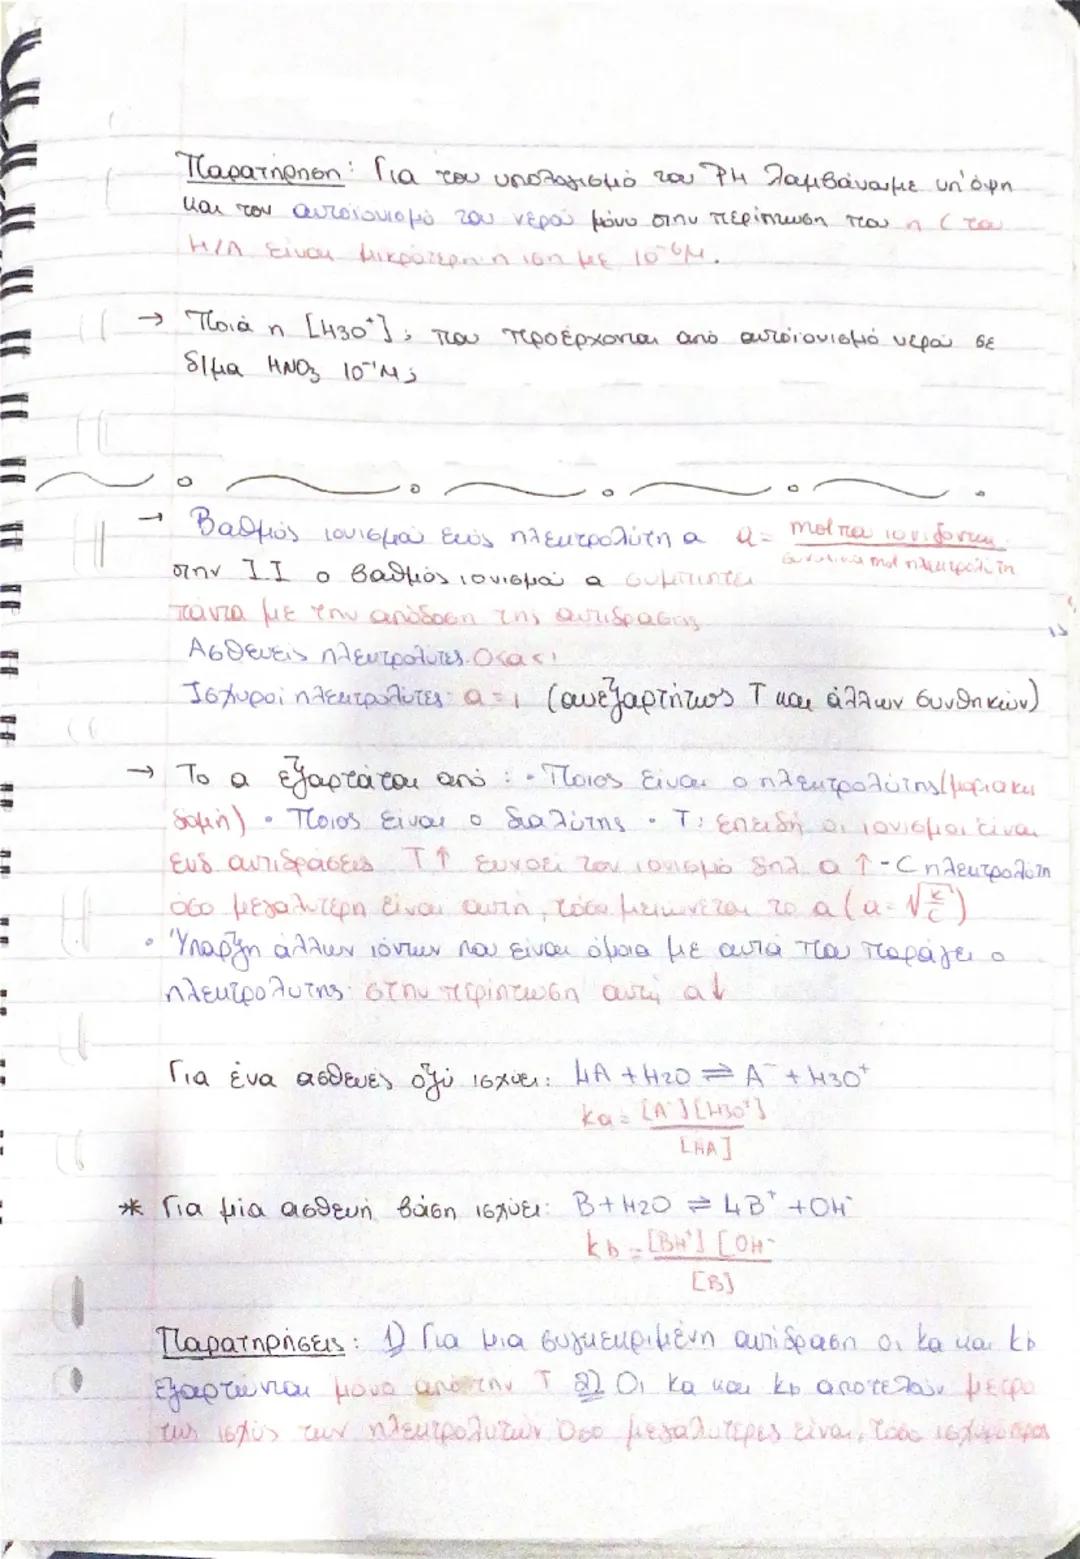 Παρατήρηση: Για τον υπολογισμό του PH λαμβάνουμε υπ'όψη
και τον αυτοϊονισμό του νερού μόνο στην περίπτωση που η C του
Η/Λ είναι μικρότερη η ιση με 10⁻⁶Μ.
→ Ποιά η [H3O⁺]; που προέρχονται από αυτοϊονισμό νερού σε
δ/μα HNO₃ 10⁻¹Μ;
→ Βαθμός ιονισμού ενός ηλεκτρολύτη α α = mol που ιονίζονται
συνολικά mol ηλεκτρολύτη
στην Ι.Ι ο βαθμός ιονισμού α συμπίπτει
πάντα με την απόδοση της αντίδρασης
Ασθενείς ηλεκτρολύτες. 0<α<1
Ισχυροί ηλεκτρολύτες: α=1 (ανεξαρτήτως Τ και άλλων συνθηκών)
→ Το α εξαρτάται από: • Ποιος είναι ο ηλεκτρολύτης (μοριακη
δομή) • Ποιος είναι ο διαλύτης • Τ: επειδή οι ιονισμοι είναι
ενδ. αντιδράσεις Τ↑ ευνοεί τον ιονισμό δηλ α ↑ - C ηλεκτρολύτη
όσο μεγαλύτερη είναι αυτή, τόσο μειώνεται το α (α=√K/C)
• Ύπαρξη άλλων ιόντων που είναι όμοια με αυτά που παράγει ο
ηλεκτρολυτης: στην περίπτωση αυτή α↓
Για ένα ασθενές οξύ ισχύει: HA + H2O ⇌ A⁻ + H3O⁺
ka = [A⁻][H3O⁺]
[HA]
* Για μία ασθενή βάση ισχύει: B + H2O ⇌ HB⁺ + OH⁻
kb = [BH⁺] [OH⁻
[B]
Παρατηρήσεις: 1) Για μια συγκεκριμένη αντίδραση οι ka και kb
εξαρτώνται μόνο από την Τ 2) Οι ka και kb αποτελούν μέτρο
της ισχύς των ηλεκτρολυτών. Όσο μεγαλύτερες είναι, τόσο ισχυρότεροι